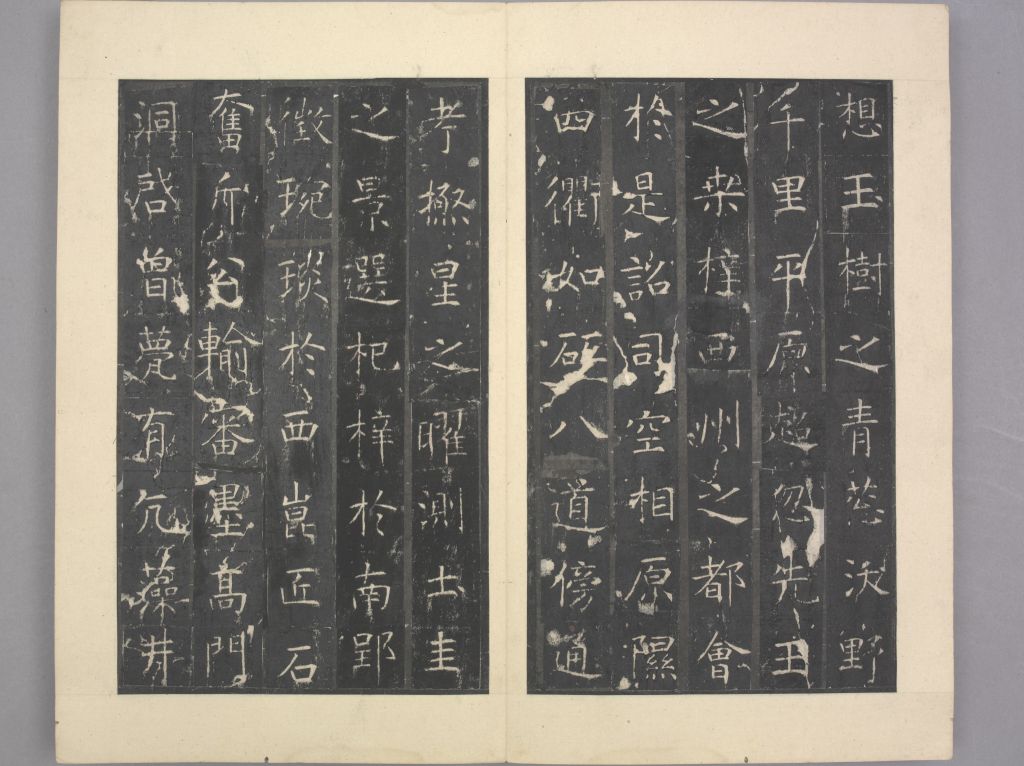 想玉樹之青葱沃野
千里平原超忽先王
之桒梓西州之都會
扵是詔司空相原隰
四衢如砥八道傍通
考極星之曜測圡圭
之景選杞梓扵南郢
徵琬琰扵西崑匠石
奮斤公輸審墨髙門
洞啓曾甍有亢藻井